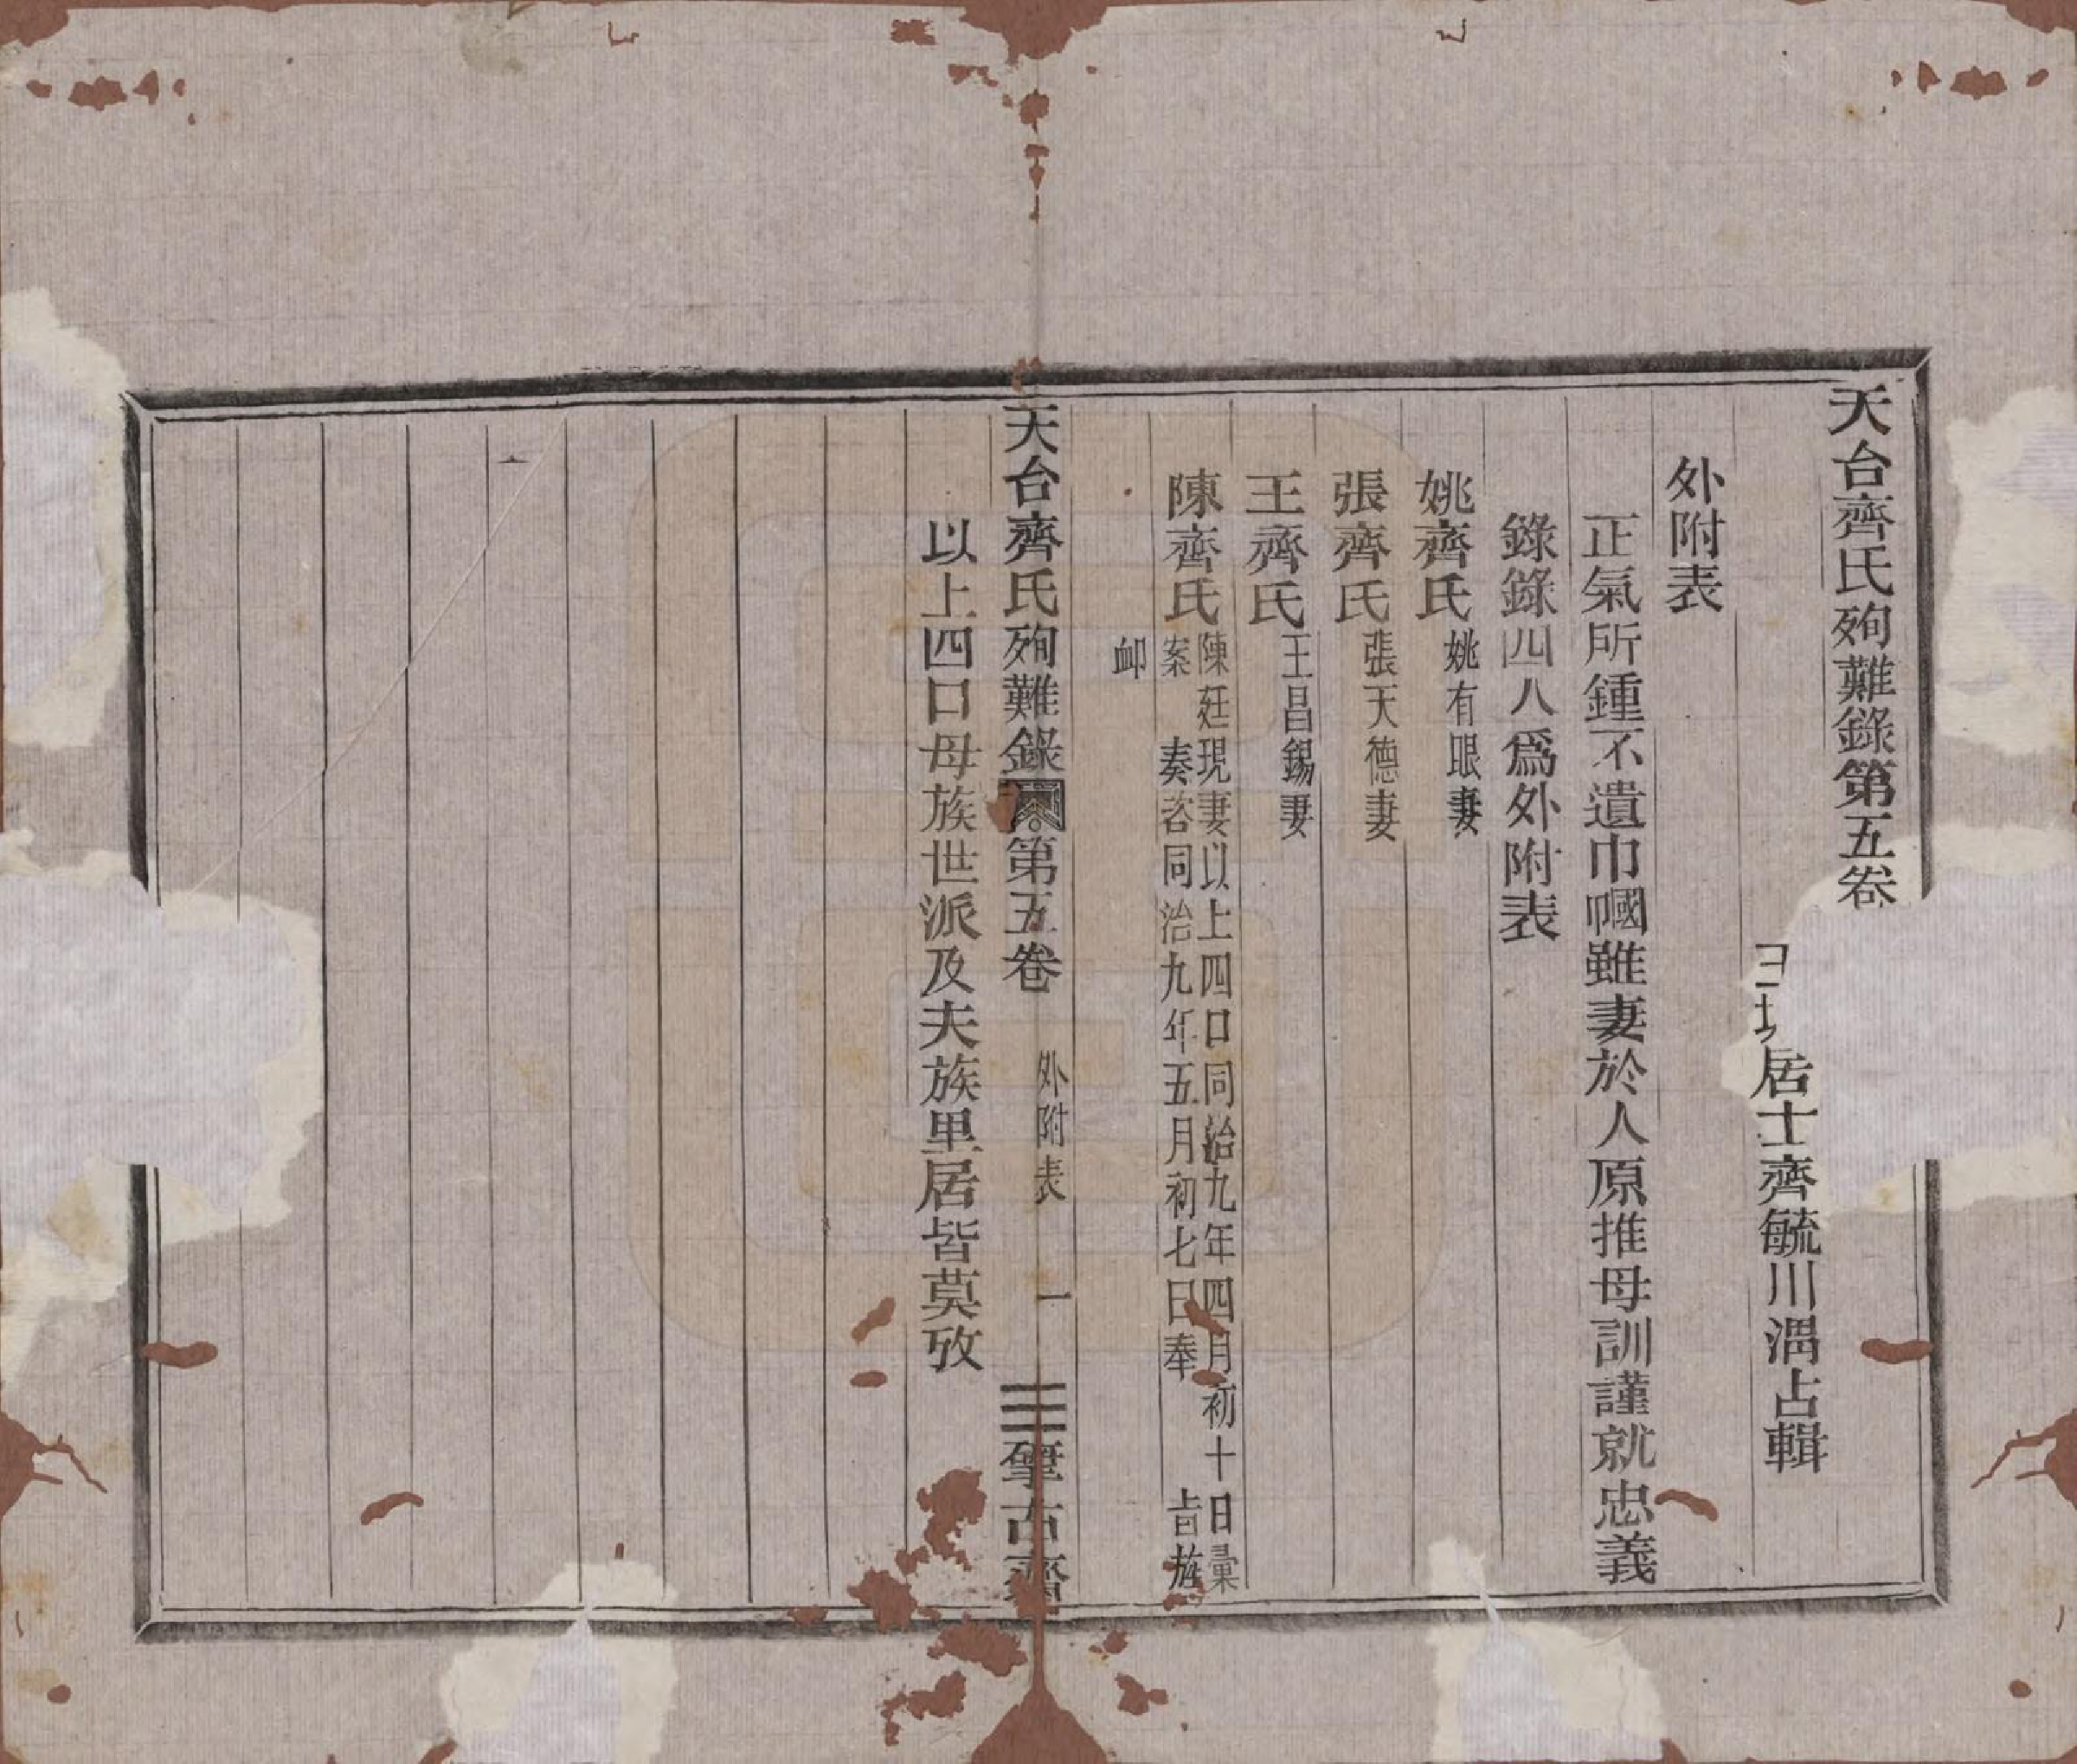 天台齊氏殉難錄第五卷
居士齊毓川溤占輯
外附表
正氣所鍾不遺巾幗雖妻於人原推母訓謹就忠義
錄錄四人為外附表
姚齊氏姚有眼妻
張齊氏張天德妻
王齊氏王昌錫妻
陳齊氏陳廷現妻以上四口同治九年四月初十日彙
案　奏咨同治九年五月初七日奉　旨旌
卹
天台齊氏殉難錄　第五卷　外附表　一　肈古齋
以上四口母族世派及夫族里居皆莫攷